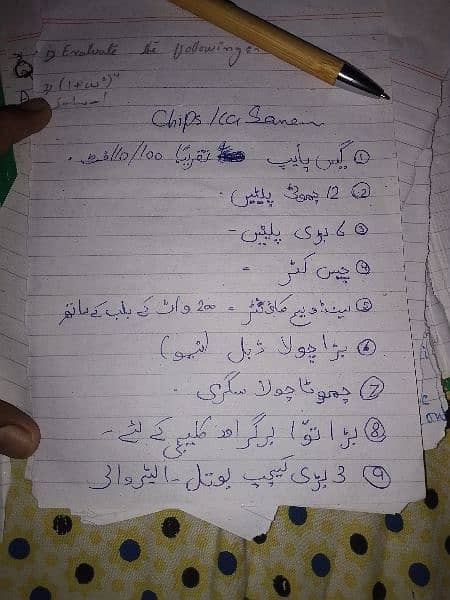 1) Evaluate the following
1) (1+ω²)⁴
Chips Ka Saman
① گیس پائپ تقریباً 100/110 فٹ۔
② 12 چھوٹی پلیٹیں۔
③ 6 بڑی پلیٹیں۔
④ چپس کٹر =
⑤ سینڈوچ کاؤنٹر = 200 واٹ کے بلب کے ساتھ
⑥ بڑا چولا ڈبل (نیو)
⑦ چھوٹا چولا سگری
⑧ بڑا توّا برگر اور کلیجی کے لئے۔
⑨ 3 بڑی کیچپ بوتل - الٹر والی